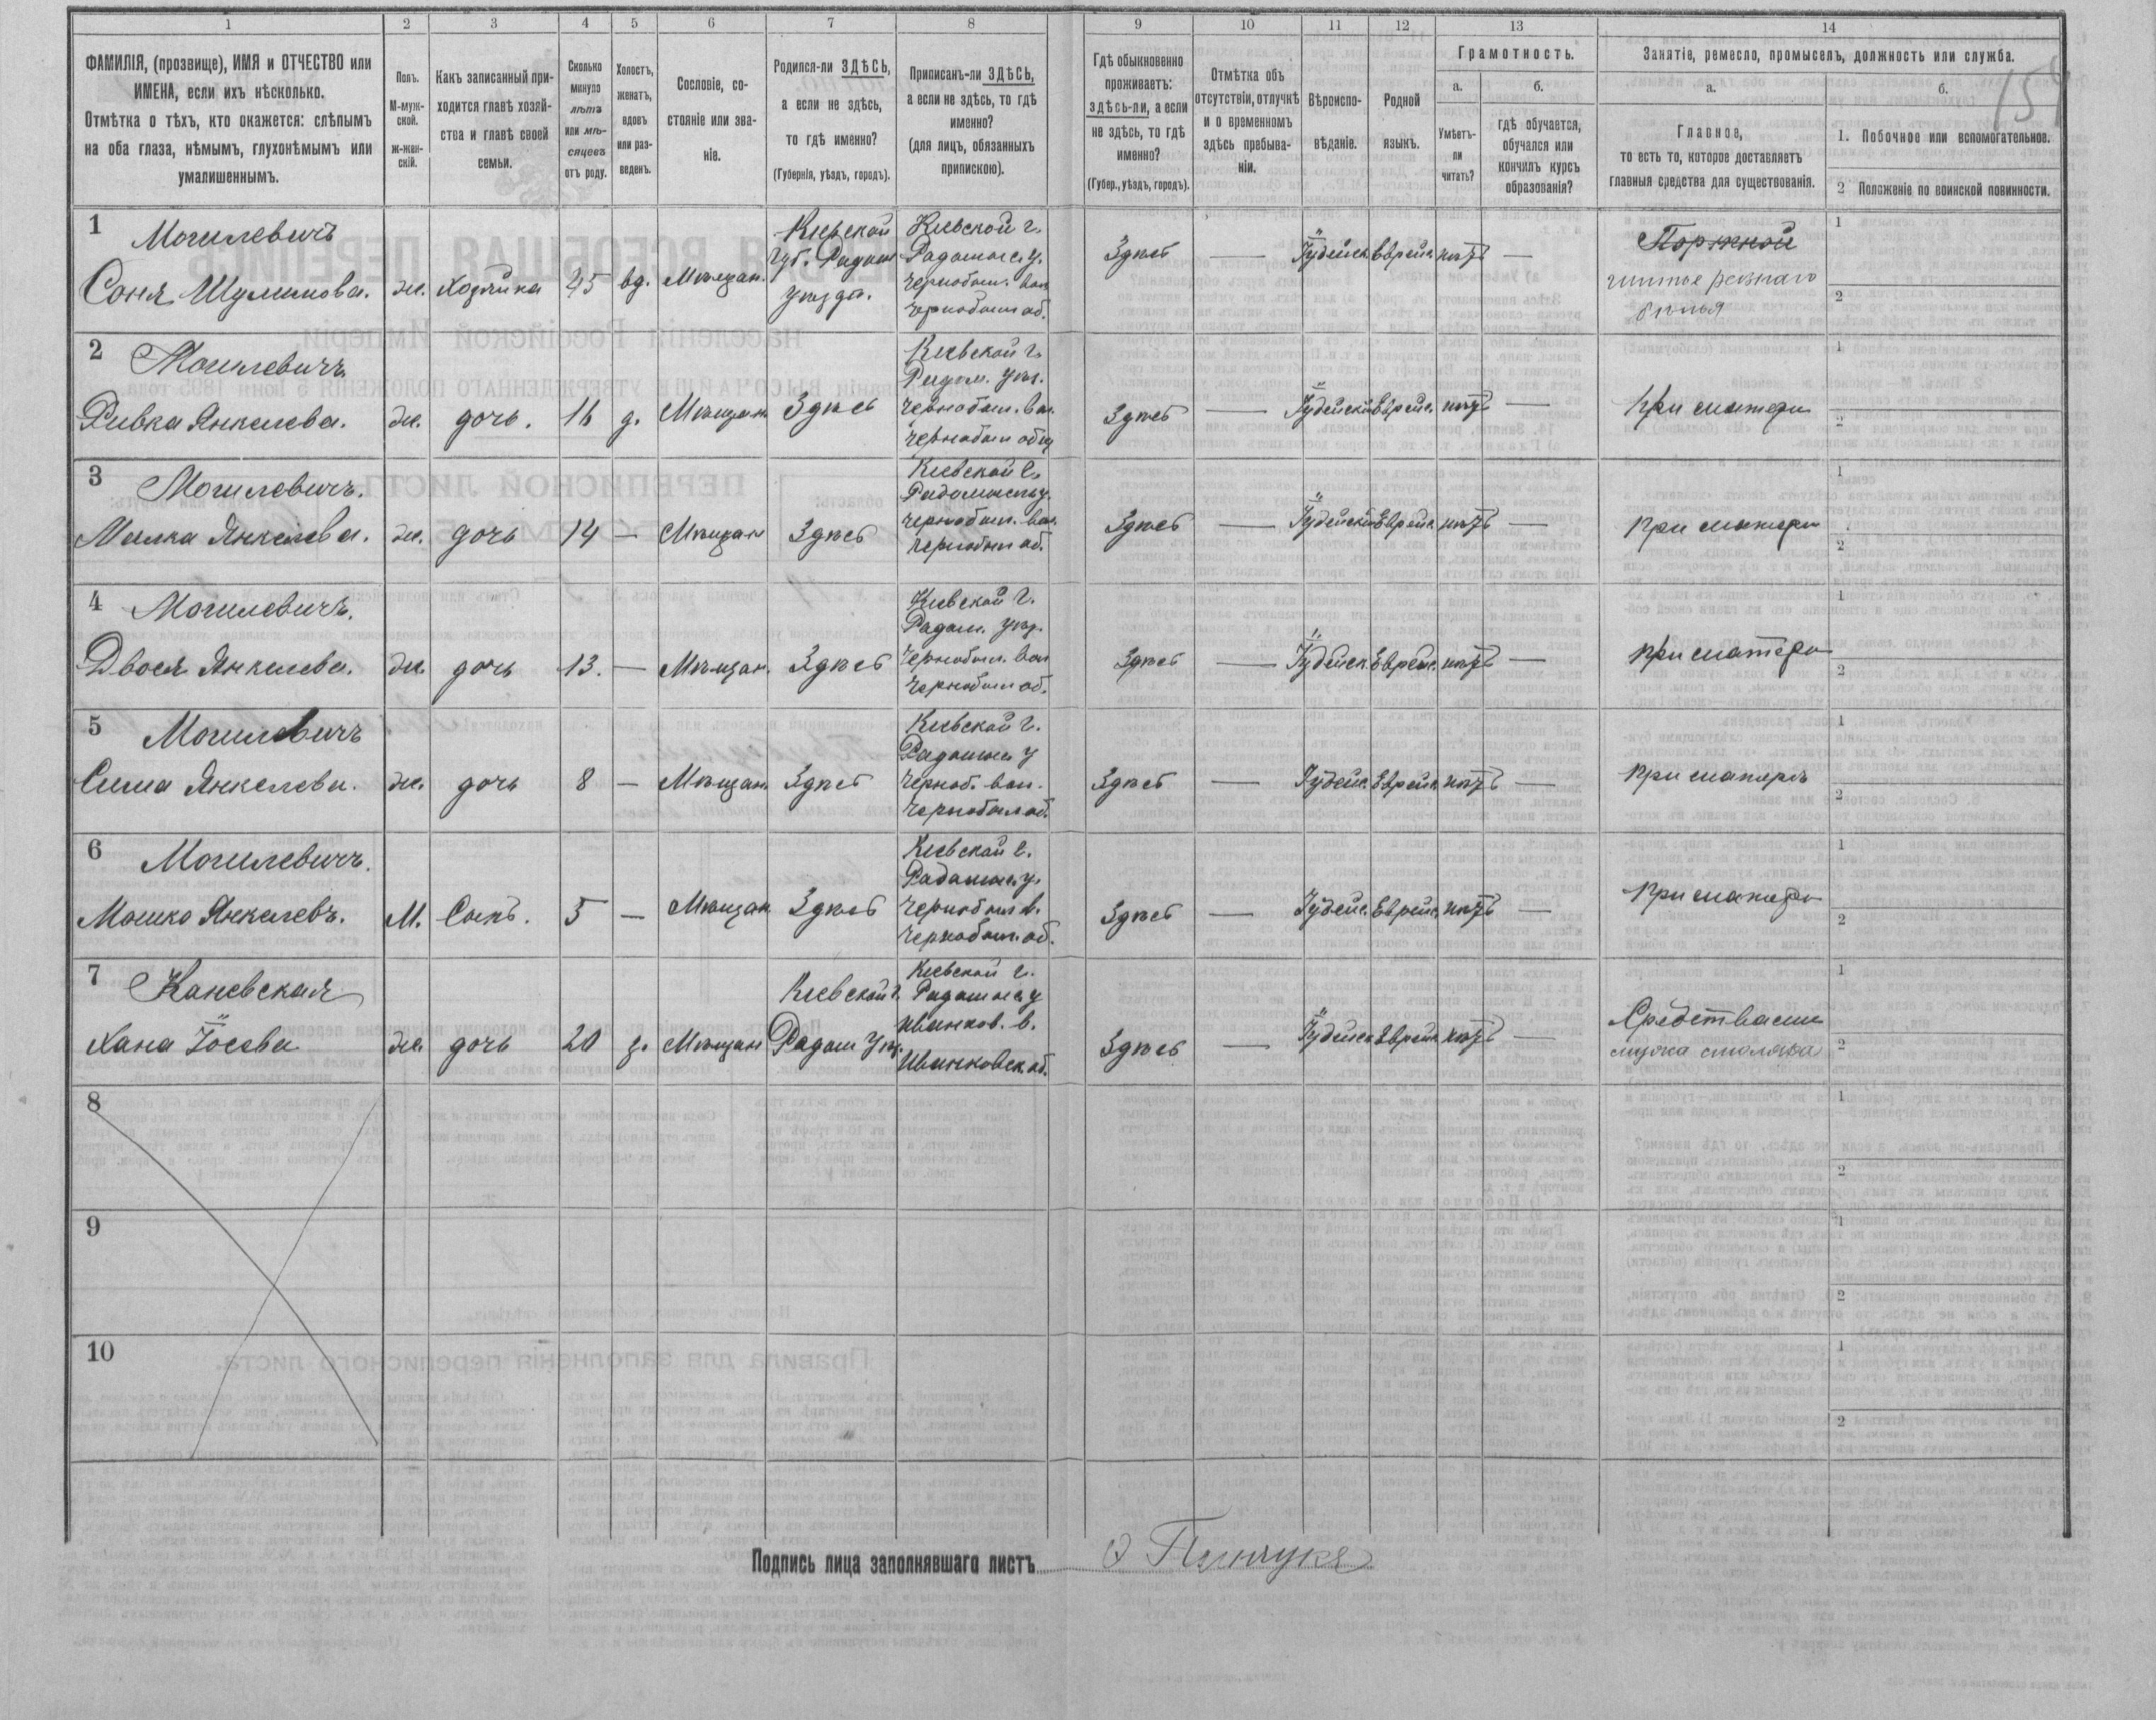 1 2 3 4 5 6 7 8 9 10 11 12 13 14
ФАМИЛІЯ, (прозвище), ИМЯ и ОТЧЕСТВО или
ИМЕНА, если ихъ нѣсколько.
Отмѣтка о тѣхъ, кто окажется: слѣпымъ
на оба глаза, нѣмымъ, глухонѣмымъ или
умалишеннымъ.
Полъ.
М-муж-
ской.
ж-жен-
скій.
Какъ записанный при-
ходится главѣ хозяй-
ства и главѣ своей
семьи.
Сколько
минуло
лѣтъ
или мѣ-
сяцевъ
отъ роду.
Холостъ,
женатъ,
вдовъ
или раз-
веденъ.
Сословіе, со-
стояніе или зва-
ніе.
Родился-ли ЗДѢСЬ,
а если не здѣсь,
то гдѣ именно?
(Губернія, уѣздъ, городъ).
Приписанъ-ли ЗДѢСЬ,
а если не здѣсь, то гдѣ
именно?
(для лицъ, обязанныхъ
припискою).
Гдѣ обыкновенно
проживаетъ:
здѣсь-ли, а если
не здѣсь, то гдѣ
именно?
(Губер., уѣздъ, городъ).
Отмѣтка объ
отсутствіи, отлучкѣ
и о временномъ
здѣсь пребыва-
ніи.
Вѣроиспо-
вѣданіе.
Родной
языкъ.
Грамотность.
а.
Умѣетъ-
ли
читать?
б.
гдѣ обучается,
обучался или
кончилъ курсъ
образованія?
Занятіе, ремесло, промыселъ, должность или служба.
а.
Главное,
то есть то, которое доставляетъ
главныя средства для существованія.
б.
1. Побочное или вспомогательное.
2 Положеніе по воинской повинности.
1
Могилевичъ
Соня Шулимова.
ж.
Хозяйка
45
вд.
Мѣщан.
Кіевской
губ. Радом
уѣзда.
Кіевской г.
Радомыс. у.
Чернобыл. вол
Чернобыл об.
Здѣсь
—
Іудейск
Еврейс.
нѣтъ
—
Портной
шитье
бѣлья
1
2
2
Могилевичъ
Ривка Янкелева.
ж.
дочь.
16
д.
Мѣщан
Здѣсь
Кіевской г.
Радом. уѣз.
Чернобыл. вол.
Чернобыл общ
Здѣсь
—
Іудейск
Еврейс.
нѣтъ
—
При матери
1
2
3
Могилевичъ.
Малка Янкелева.
ж.
дочь
14
—
Мѣщан
Здѣсь
Кіевской г.
Радомысль у.
Чернобыл. вол.
Чернобыл об.
Здѣсь
—
Іудейск
Еврейс.
нѣтъ
—
При матери
1
2
4
Могилевичъ.
Двося Янкелева.
ж.
дочь
13.
—
Мѣщан.
Здѣсь
Кіевской г.
Радом. уѣзд.
Чернобыл. вол
Чернобыл об.
Здѣсь
—
Іудейск
Еврейс.
нѣтъ
—
При матери
1
2
5
Могилевичъ
Сима Янкелева.
ж.
дочь
8
—
Мѣщан.
Здѣсь
Кіевской г.
Радомыс у
Черноб. вол.
Чернобыл об.
Здѣсь
—
Іудейс.
Еврейс.
нѣтъ
—
При матери
1
2
6
Могилевичъ.
Мошко Янкелевъ.
М.
Сынъ.
5
—
Мѣщан
Здѣсь
Кіевской г.
Радомыс. у.
Чернобыл в.
Чернобыл. об.
Здѣсь
—
Іудейс.
Еврейс.
нѣтъ
—
При матери
1
2
7
Каневская
Хана Іосева
ж.
дочь
20
д.
Мѣщан
Кіевской г.
Радом уѣз.
Кіевской г.
Радомыс у
Иванков. в.
Иванковск об.
Здѣсь
—
Іудейск
Еврейс
нѣтъ
—
Средствами
1
2
8
1
2
9
1
2
10
1
2
Подпись лица заполнявшаго листъ